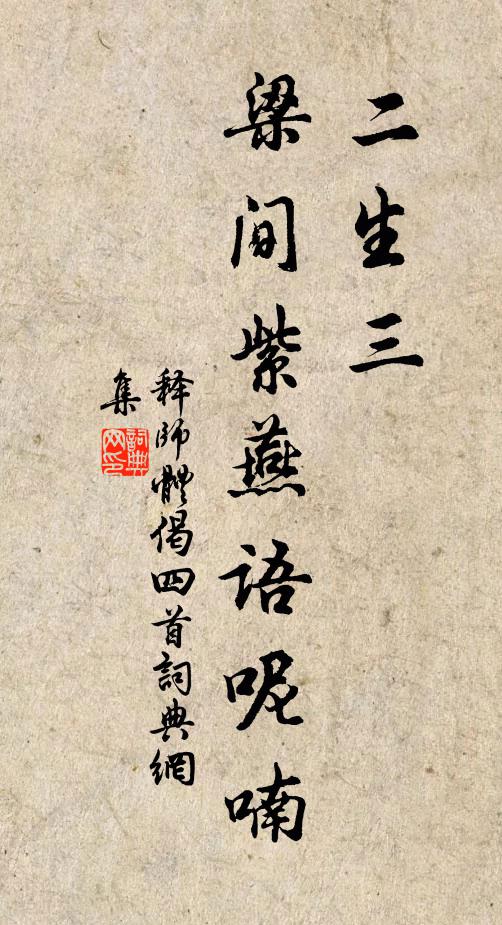 二生三
梁间紫燕语呢喃
释師體偈四首詞典網
集
詞典
网印